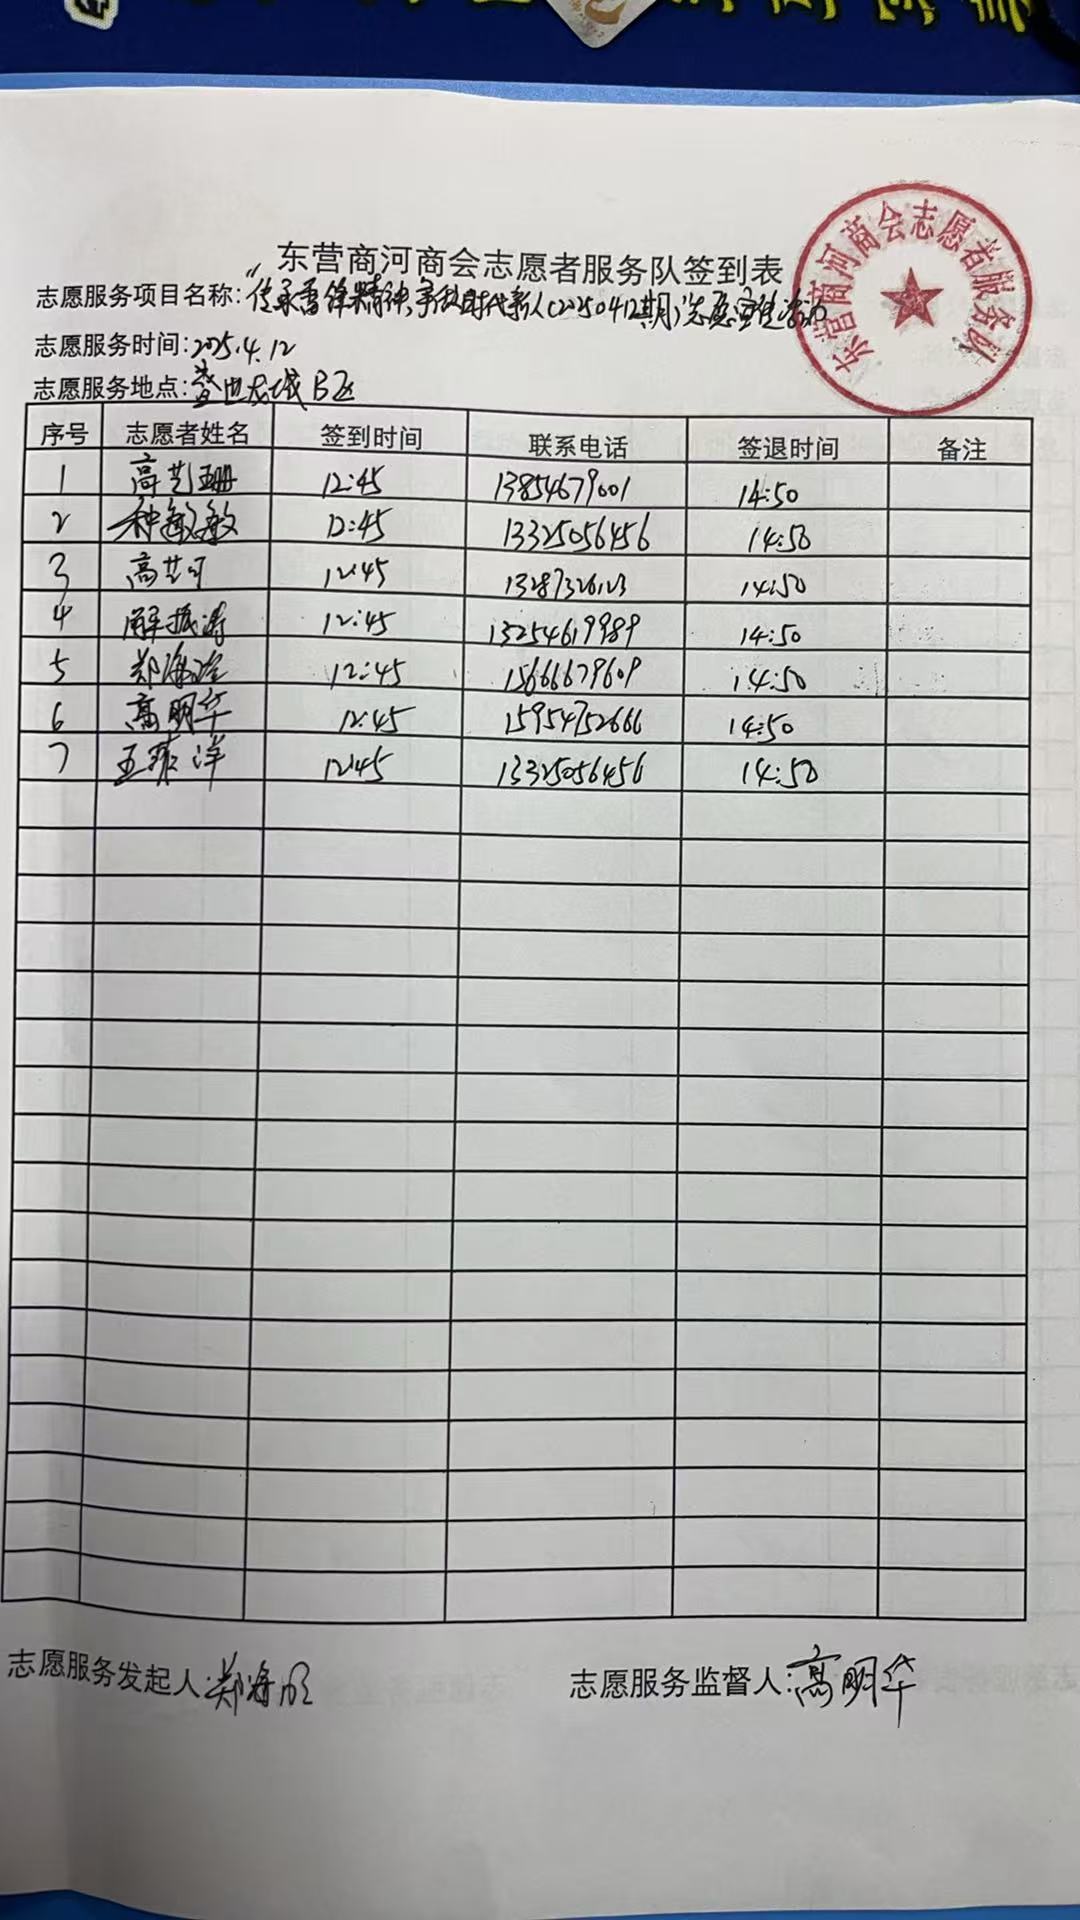 东营商河商会志愿者服务队
东营商河商会志愿者服务队签到表
志愿服务项目名称:"传承雷锋精神,争做时代新人(20250412期)"志愿宣传活动
志愿服务时间:2025.4.12
志愿服务地点:登世龙城B区
序号 志愿者姓名 签到时间 联系电话 签退时间 备注
1 高艺珊 12:45 13854679001 14:50
2 种敏敏 12:45 13325056456 14:50
3 高艺可 12:45 13287326123 14:50
4 解振涛 12:45 13254619989 14:50
5 郑海 12:45 15666679609 14:50
6 高明华 12:45 15954752666 14:50
7 王 洋 12:45 13325056456 14:50
志愿服务发起人:郑海
志愿服务监督人:高明华